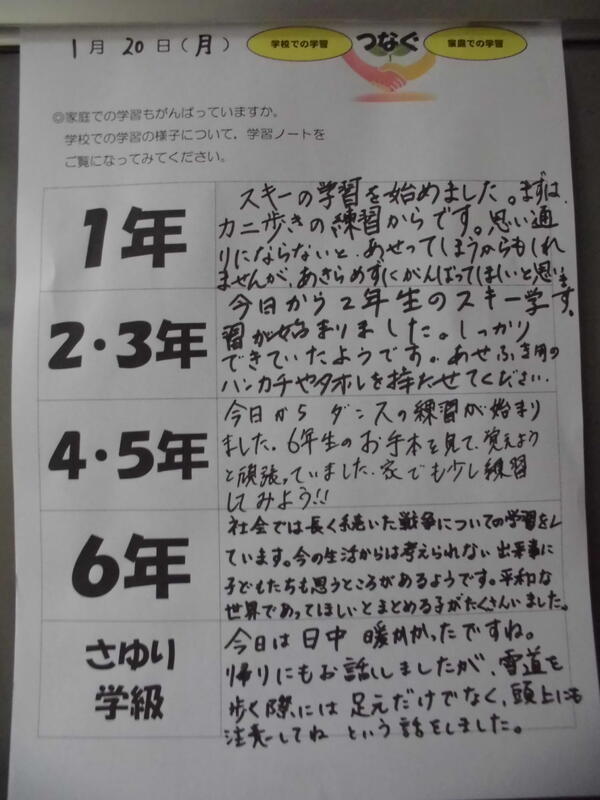 1月 20日(月)
学校での学習
つなぐ
家庭での学習
◎家庭での学習もがんばっていますか。
学校での学習の様子について,学習ノートを
ご覧になってみてください。
1年
スキーの学習を始めました。まずは、
カニ歩きの練習からです。思い通
りにならないと、あせってしまうかもしれ
ませんが、あきらめずにがんばってほしいと思います。
2・3年
今日から2年生のスキー学
習が始まりました。しっかり
できていたようです。あせふき用の
ハンカチやタオルを持たせてください。
4・5年
今日から ダンスの練習が始まり
ました。6年生のお手本を見て、覚えよう
と頑張っていました。家でも少し練習
してみよう!!
6年
社会では長く続いた戦争についての学習をし
ています。今の生活からは考えられない出来事に
子どもたちも思うところがあるようです。平和な
世界であってほしいとまとめる子がたくさんいました。
さゆり
学級
今日は日中 暖かかったですね。
帰りにもお話ししましたが、雪道を
歩く際には足元だけでなく、頭上にも
注意してね という話をしました。